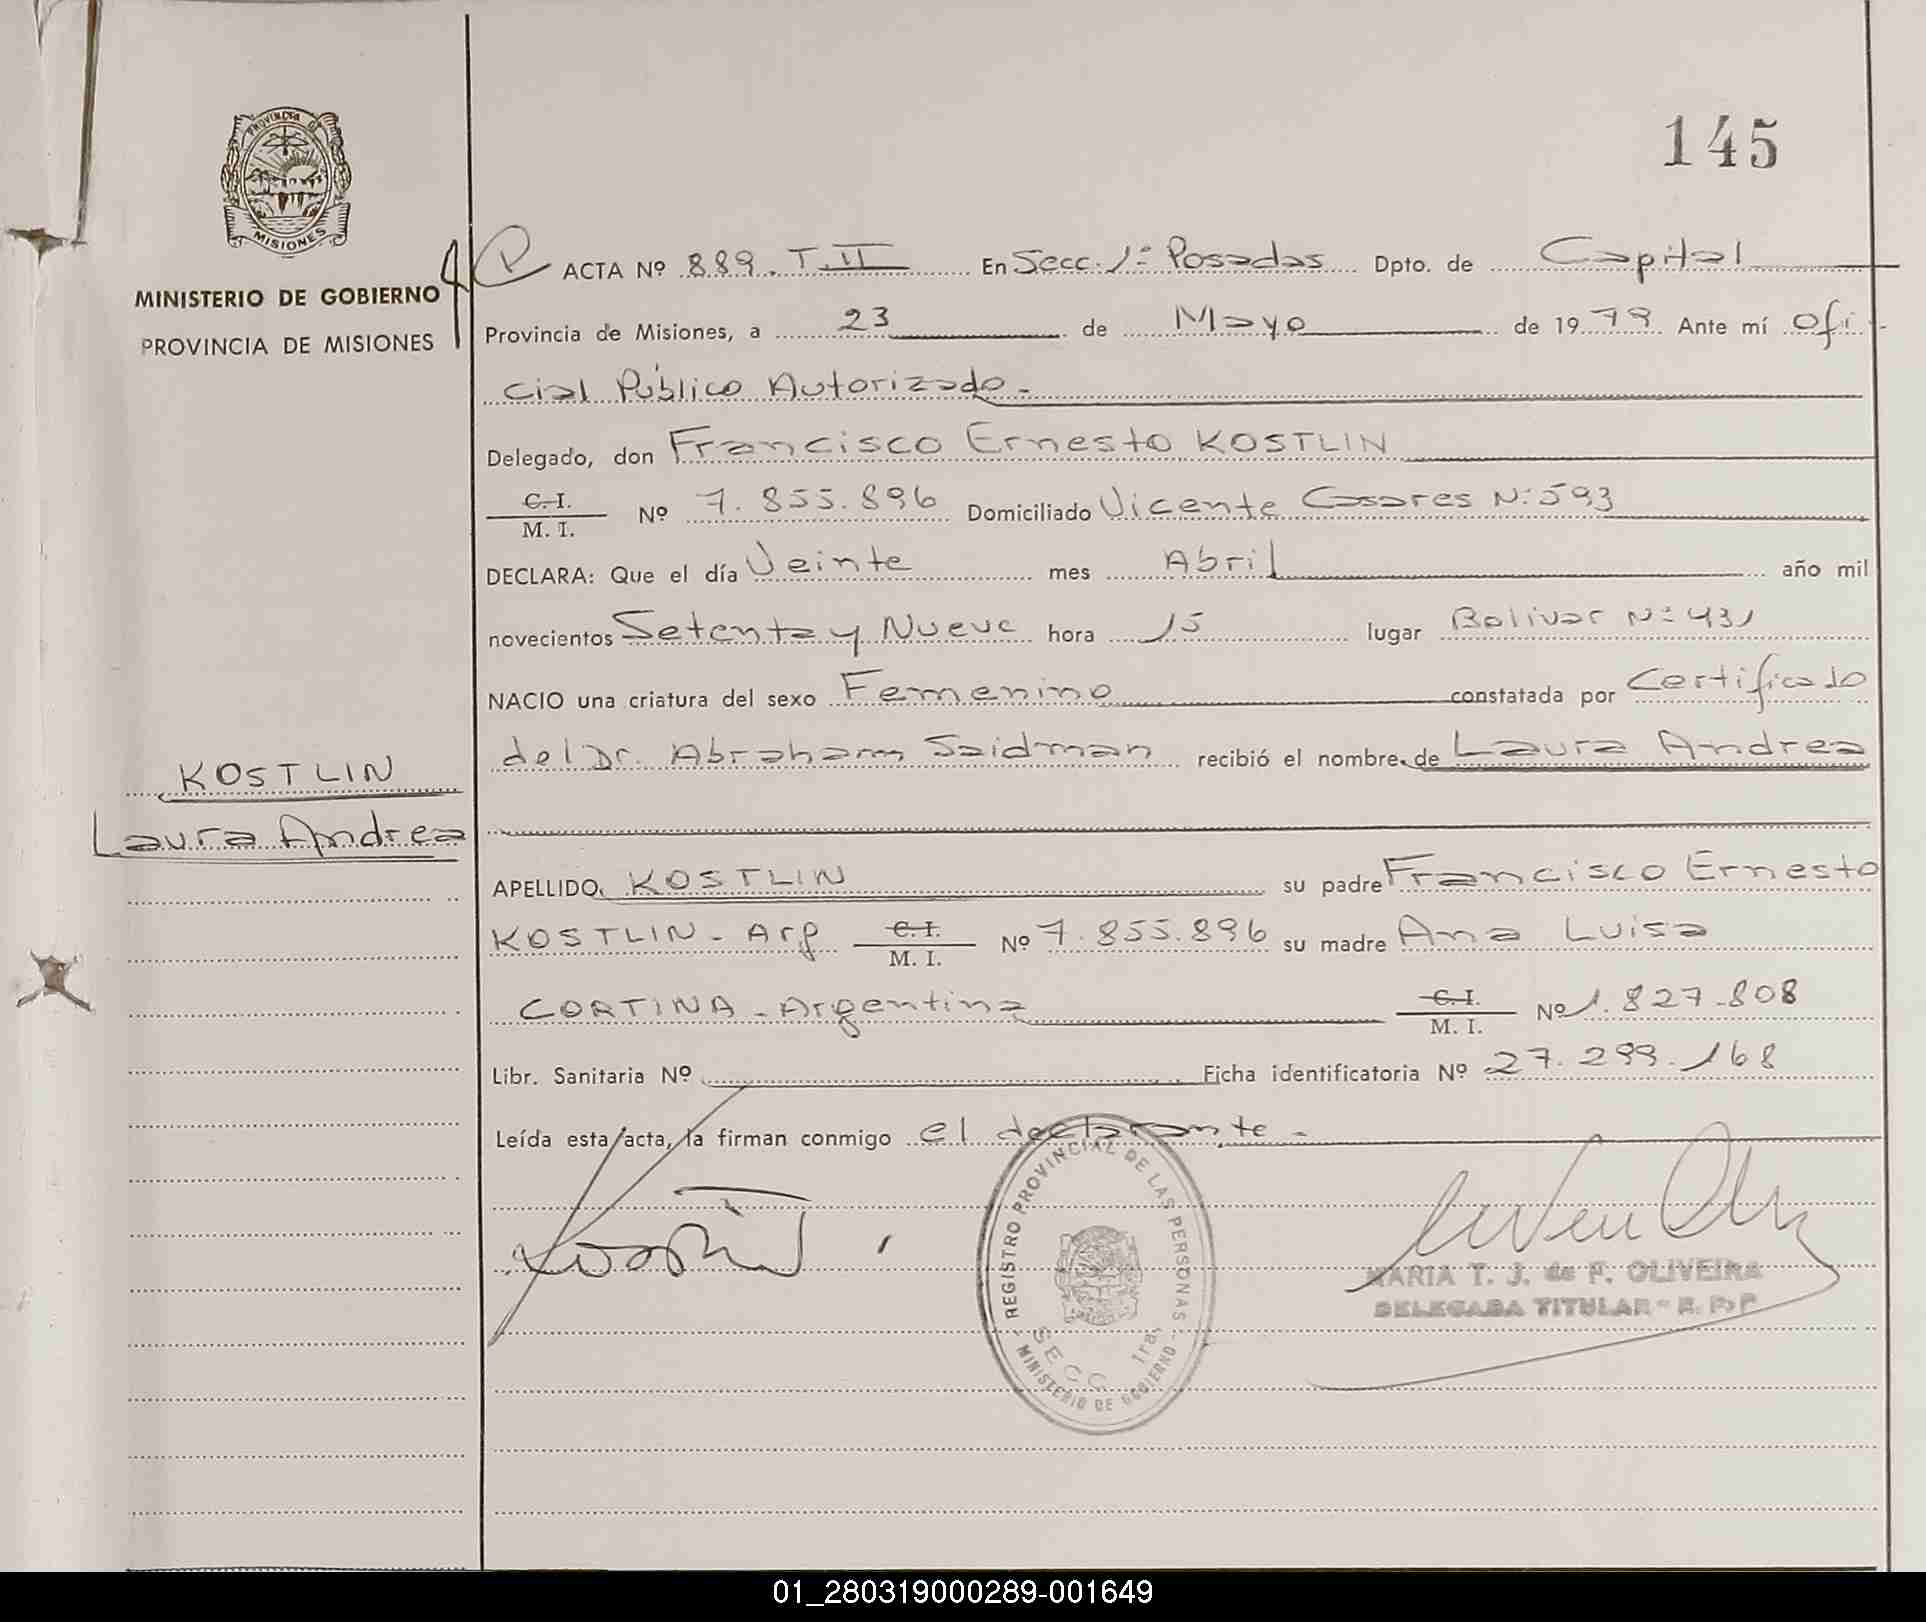 145
PROVINCIA DE
MISIONES
MINISTERIO DE GOBIERNO
PROVINCIA DE MISIONES
ACTA Nº 889. T. II En Secc. 1ª Posadas Dpto. de Capital
Provincia de Misiones, a 23 de Mayo de 1979 Ante mí Ofi-
cial Público Autorizado.-
Delegado, don Francisco Ernesto KOSTLIN
C. I.
M. I. Nº 7.855.896 Domiciliado Vicente Casares Nº 593
DECLARA: Que el día Veinte mes Abril año mil
novecientos Setenta y Nueve hora 15 lugar Bolivar Nº 431
NACIO una criatura del sexo Femenino constatada por Certificado
del Dr. Abraham Saidman recibió el nombre de Laura Andrea
KOSTLIN
Laura Andrea
APELLIDO KOSTLIN su padre Francisco Ernesto
KOSTLIN - Arg C. I.
M. I. Nº 7.855.896 su madre Ana Luisa
CORTINA - Argentina C. I.
M. I. Nº 1.827.808
Libr. Sanitaria Nº Ficha identificatoria Nº 27.299.168
Leída esta acta, la firman conmigo el declarante -
REGISTRO PROVINCIAL DE LAS PERSONAS
SECC 1ra.
MINISTERIO DE GOBIERNO
MARIA T. J. de F. OLIVEIRA
DELEGADA TITULAR - R. P. P
01_280319000289-001649